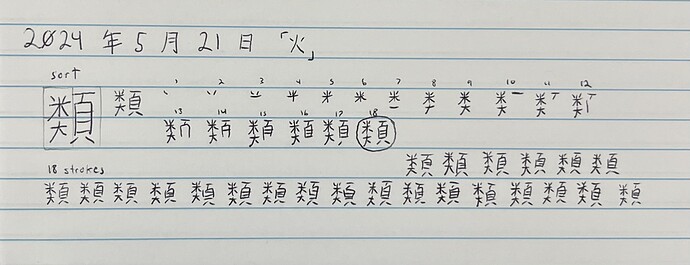 2024 年 5 月 21 日 「火」
sort
1 2 3 4 5 6 7 8 9 10 11 12
類 類 米
13 14 15 16 17 18
類
18 strokes
類 類 類 類 類 類
類 類 類 類 類 類 類 類 類 類 類 類 類 類 類 類 類